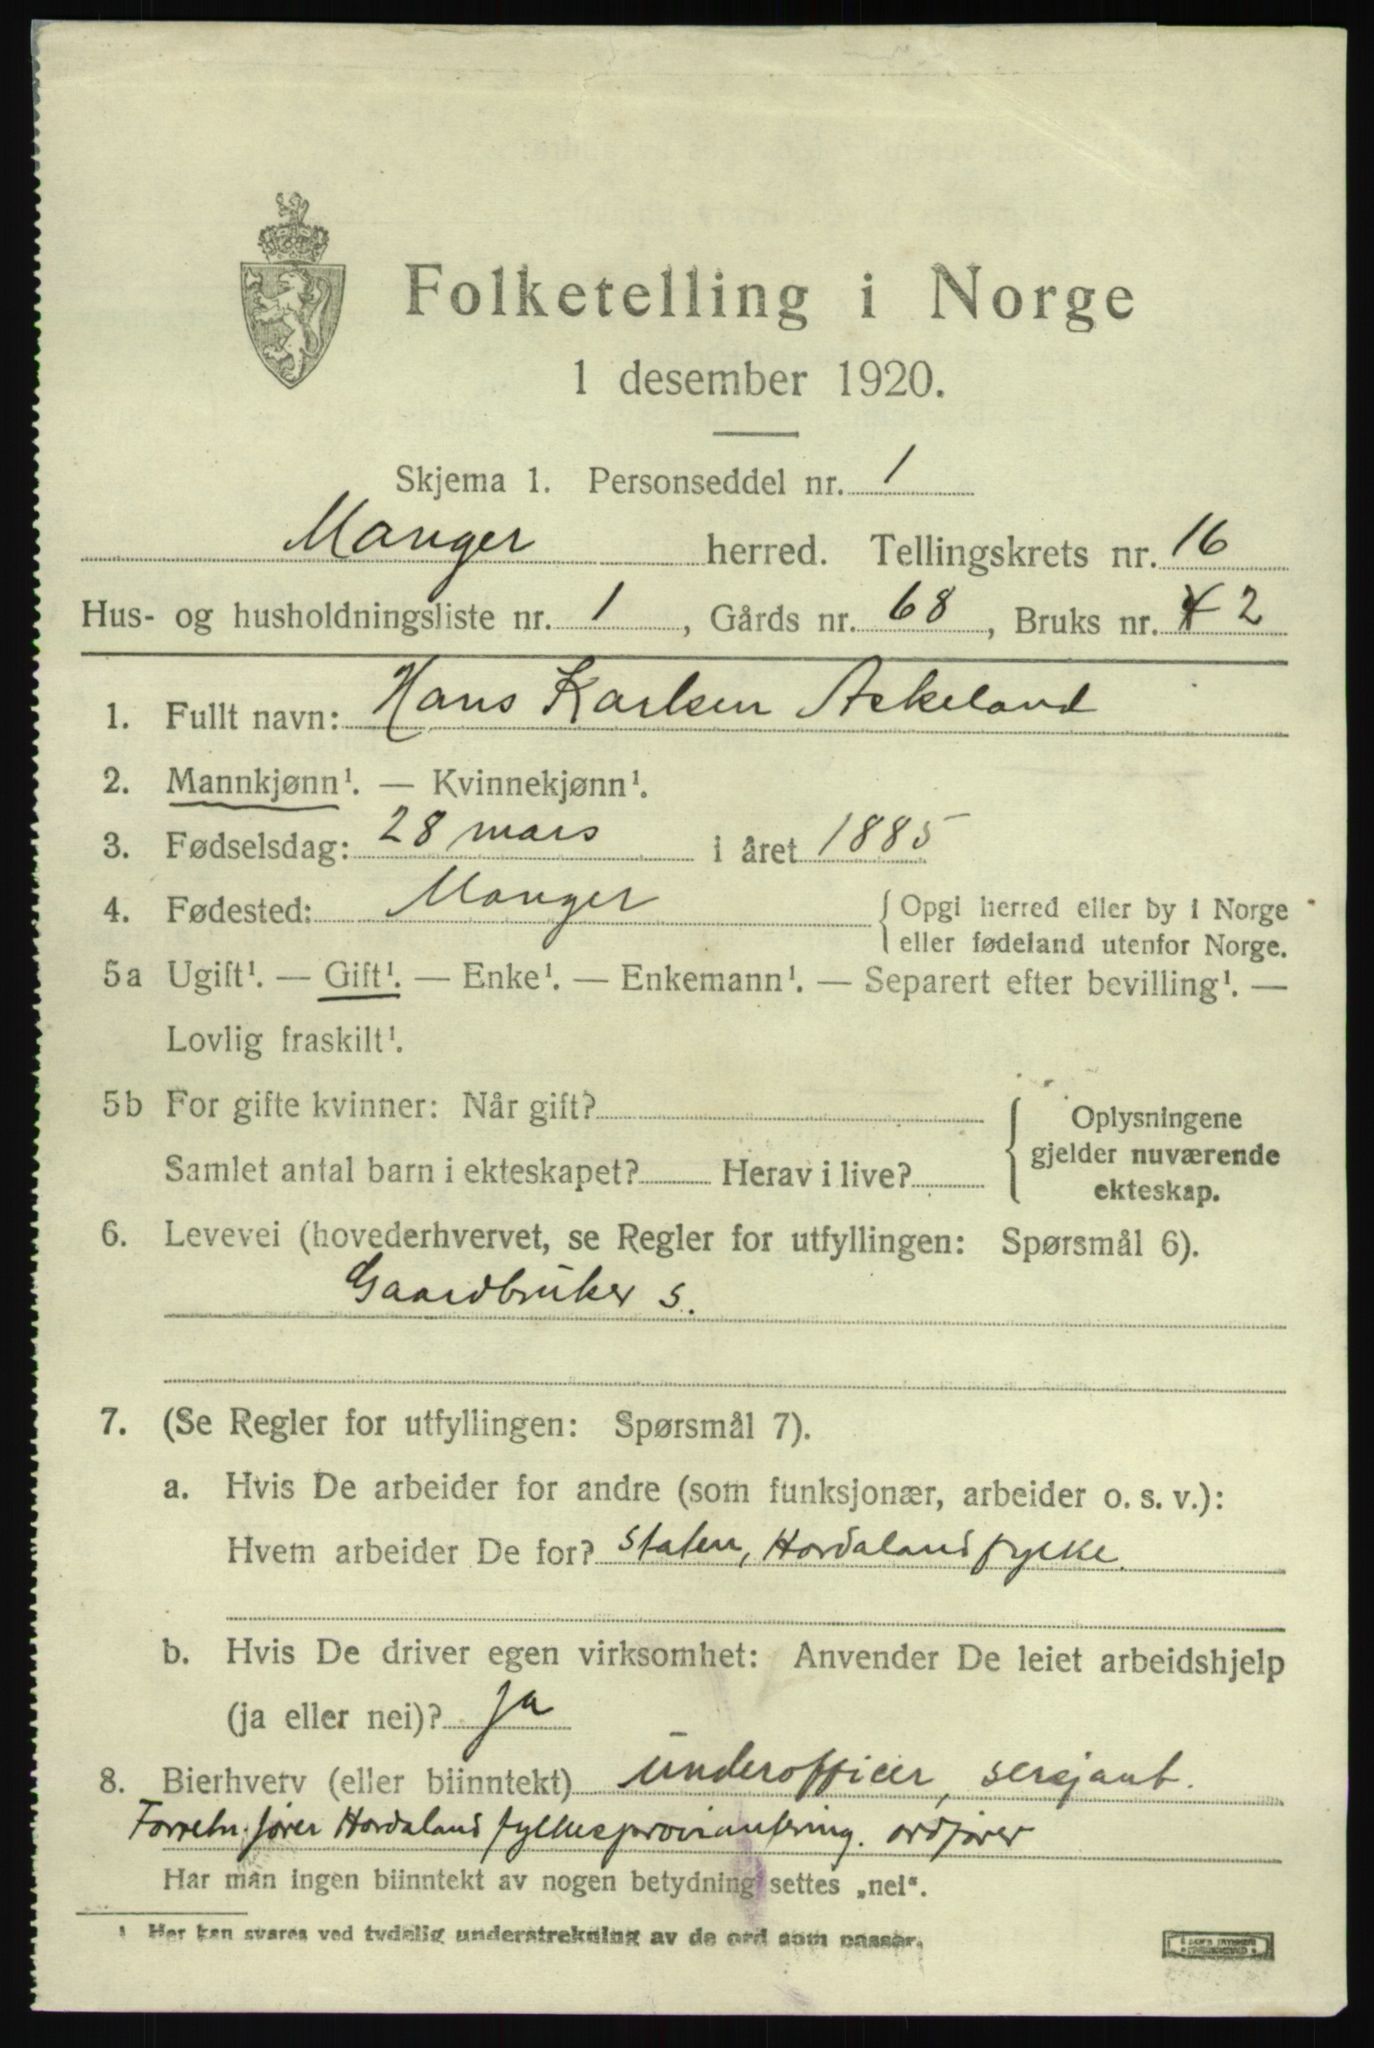 Folketelling i Norge
1 desember 1920.
Skjema 1. Personseddel nr. 1
Manger herred. Tellingskrets nr. 16
Hus- og husholdningsliste nr. 1, Gårds nr. 68, Bruks nr. 2
1. Fullt navn: Hans Karlsen Askeland
2. Mannkjønn¹. — Kvinnekjønn¹.
3. Fødselsdag: 28 mars i året 1885
4. Fødested: Manger { Opgi herred eller by i Norge
eller fødeland utenfor Norge.
5a Ugift¹. — Gift¹. — Enke¹. — Enkemann¹. — Separert efter bevilling¹. —
Lovlig fraskilt¹.
5b For gifte kvinner: Når gift?
Samlet antal barn i ekteskapet? Herav i live?
Oplysningene
gjelder nuværende
ekteskap.
6. Levevei (hovederhvervet, se Regler for utfyllingen: Spørsmål 6).
Gaardbruker s.
7. (Se Regler for utfyllingen: Spørsmål 7).
a. Hvis De arbeider for andre (som funksjonær, arbeider o. s. v.):
Hvem arbeider De for? Staten, Hordaland fylke.
b. Hvis De driver egen virksomhet: Anvender De leiet arbeidshjelp
(ja eller nei)? ja
8. Bierhverv (eller biinntekt) underofficer, sersjant.
Forretn.fører Hordaland fylkesproviantering. ordfører
Har man ingen biinntekt av nogen betydning settes „nei“.
¹ Her kan svares ved tydelig understrekning av de ord som passer.